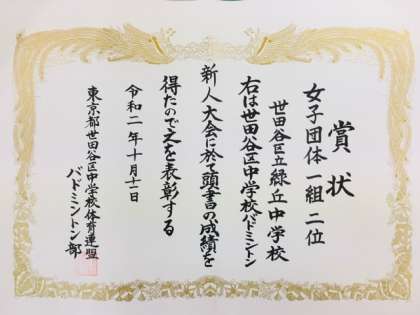 賞状
女子団体一組二位
世田谷区立緑丘中学校
右は世田谷区中学校バドミントン
新人大会に於て頭書の成績を
得たので之を表彰する
令和二年十月十一日
東京都世田谷区中学校体育連盟
バドミントン部